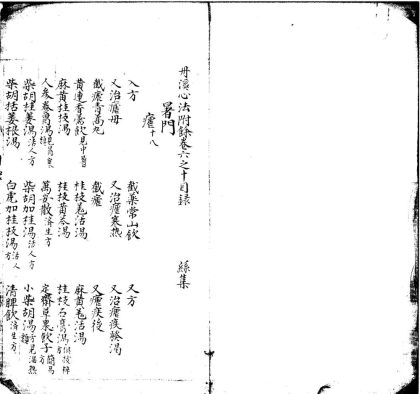 丹溪心法附餘卷六之十目録
絲集
暑門
瘧十八
入方 截藥常山飲 又方
又治瘧母 又治瘧寒熱 又治瘧痰發渴
截瘧青蒿丸 截瘧 又瘧疾後
黄連香薷飲見中暑 桂枝羌活湯 麻黄羌活湯
麻黄桂枝湯 桂枝黄芩湯 桂枝石膏湯
人參養胃湯 萬安散濟生方 定齋草果飲子
柴胡桂薑湯活人方 柴胡加桂湯活人方 小柴胡湯
柴胡栝蔞根湯 白虎加桂枝湯活人方 清脾飲濟生方